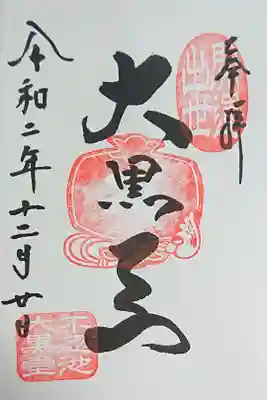 奉拝
出世
大黒天
令和二年十二月廿日
不忍池
大黒堂